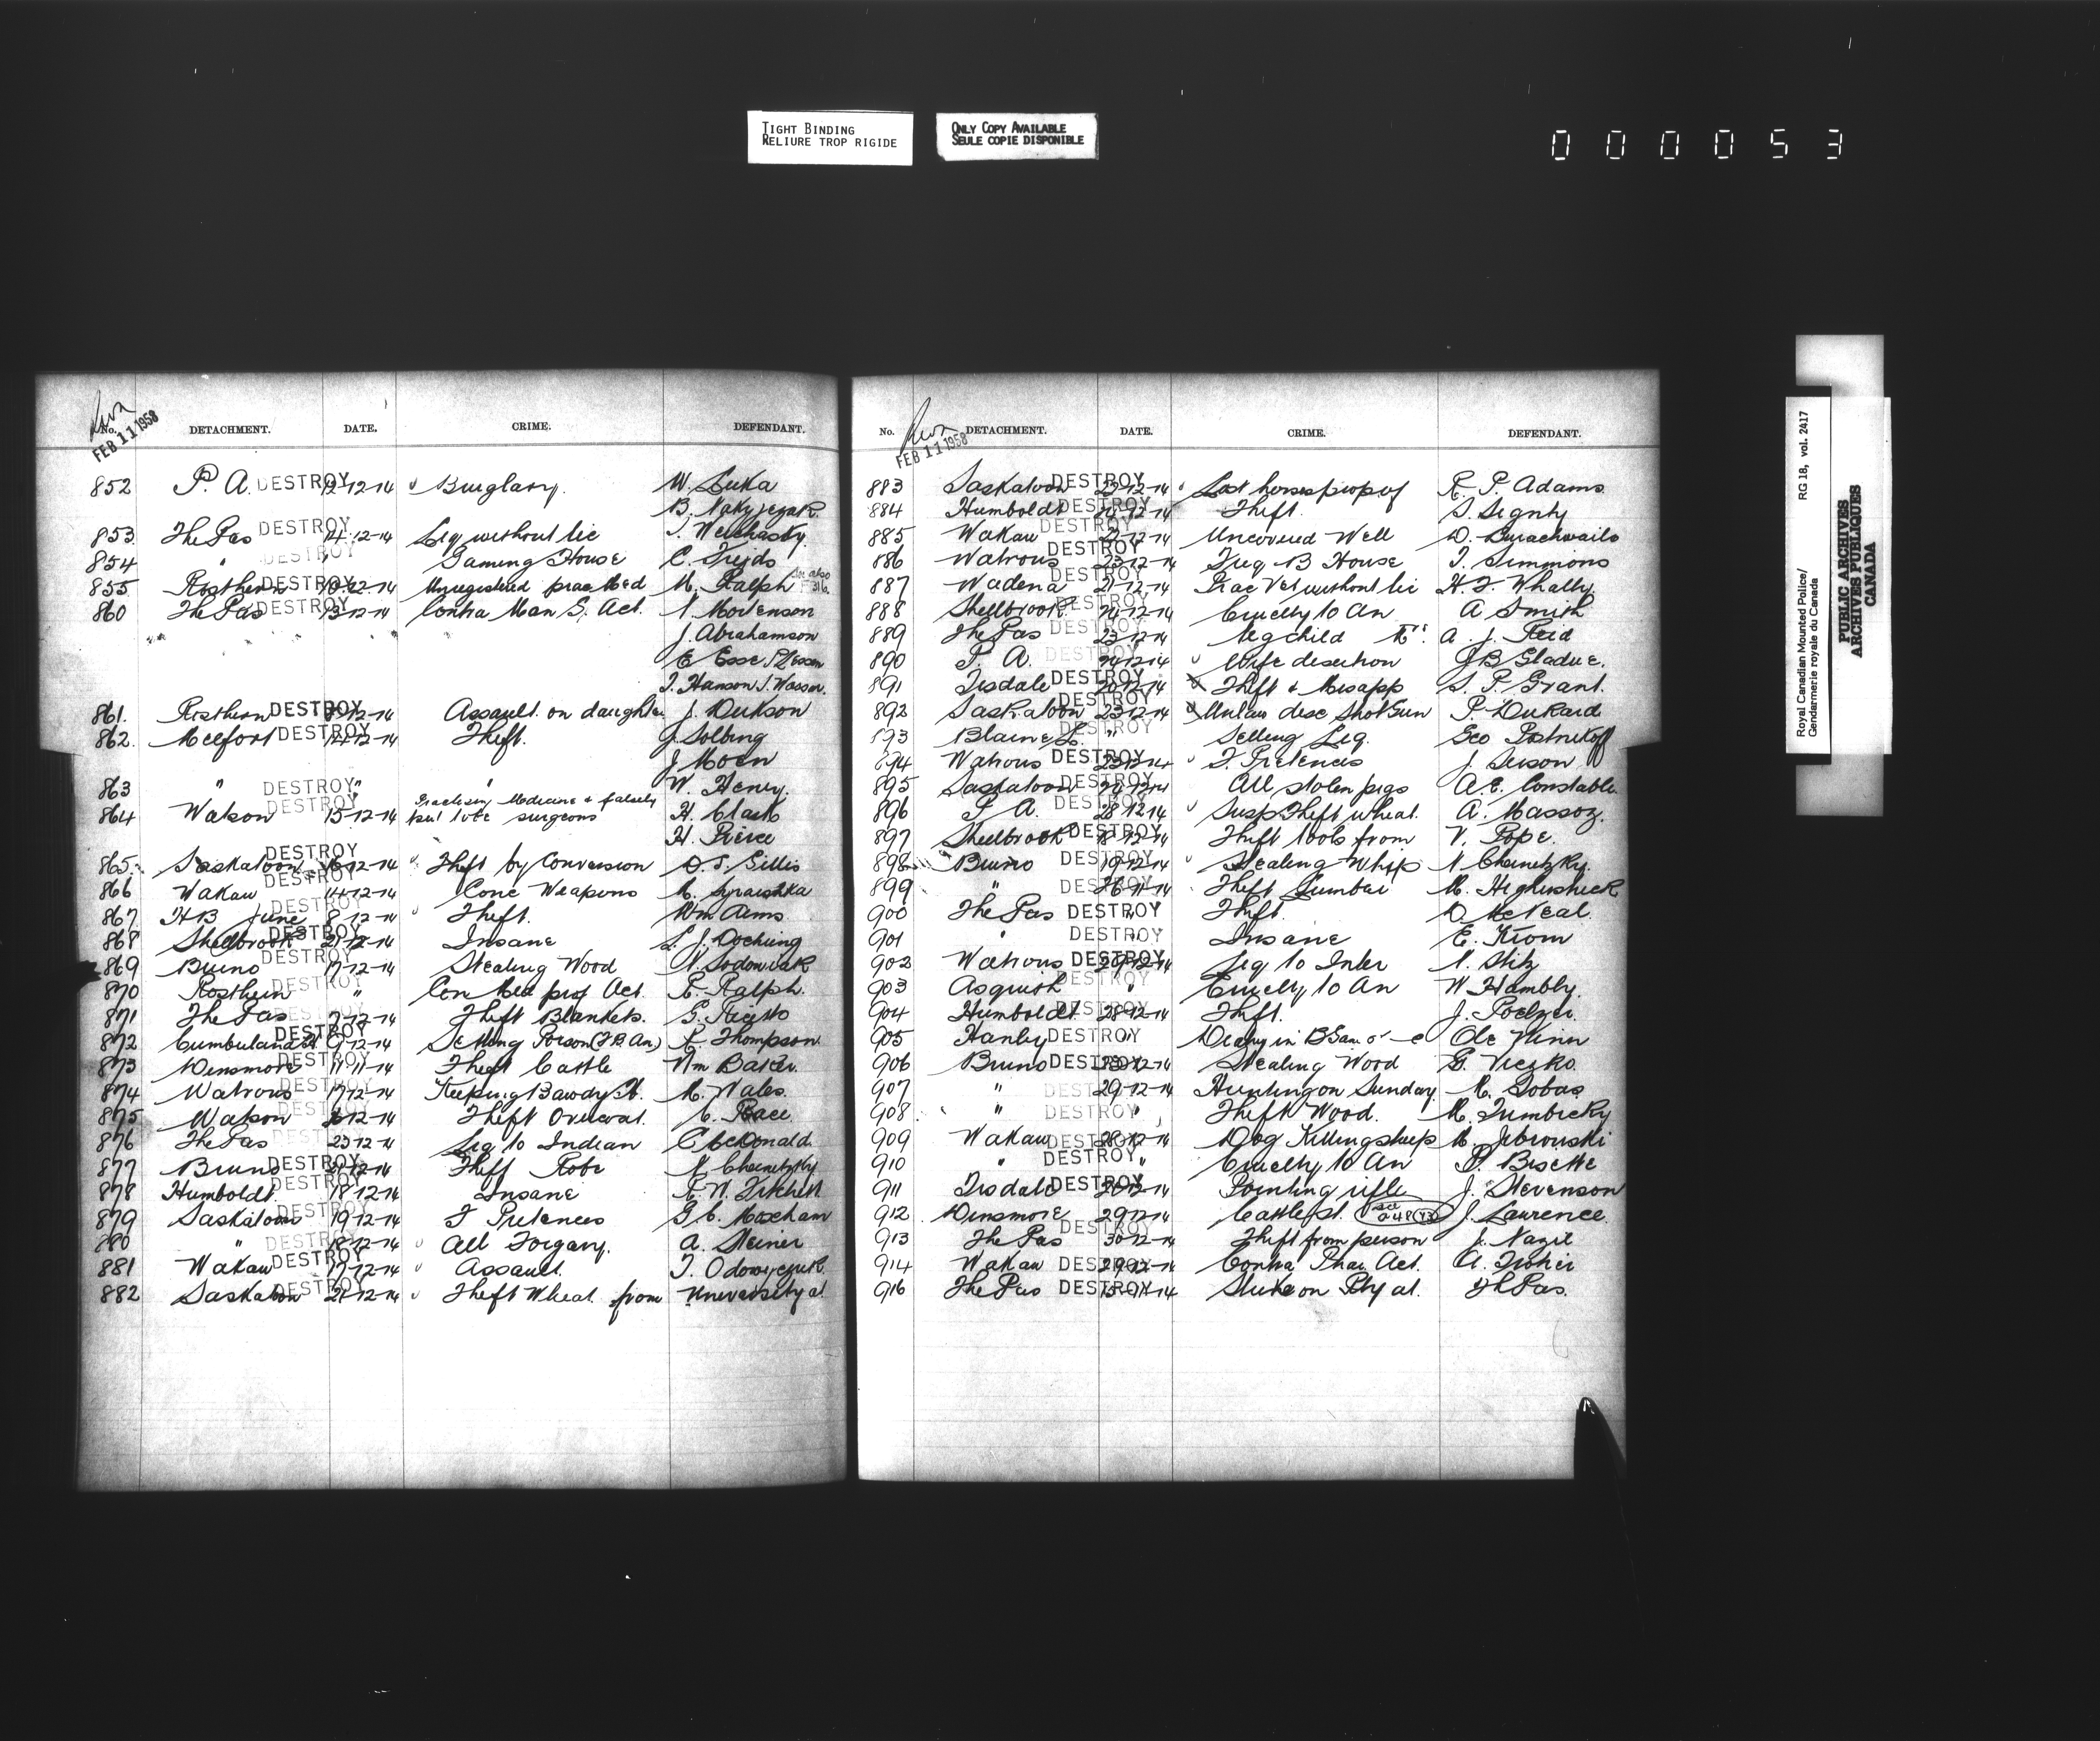 TIGHT BINDING
RELIURE TROP RIGIDE
ONLY COPY AVAILABLE
SEULE COPIE DISPONIBLE
000053
No. DETACHMENT. DATE. CRIME. DEFENDANT.
FEB 11 1958
852 P. A. DESTROY 12-12-14 Burglary. W. Luka
B.
853 The Pas DESTROY 14-12-14 Liq without lic
854 " DESTROY " Gaming House C.
855 Rosthern DESTROY Unregistered prac Med M. Ralph See also 316
860 The Pas DESTROY 13-12-14 Contra Man S. Act. Mortenson
J. Abrahamson
E Esse
T. Hanson
861. Rosthern DESTROY 12-14 Assault on daughter J. Dukson
862. Melfort DESTROY 14-12-14 Theft. J. Solbing
J Moen
863 " DESTROY " " W. Henry.
864 Watson DESTROY 15-12-14 Practising Medicine & falsely H. Clark
surgeons H. Pierce
865. Saskatoon DESTROY 16-12-14 Theft by Conversion D. S. Gillis
866 Wakaw DESTROY 14-12-14 Conc Weapons M.
867 H B June DESTROY 8-12-14 Theft. Wm Aims
868 Shellbrook DESTROY 21-12-14 Insane L. J. Doehring
869 Bruno DESTROY 17-12-14 Stealing Wood N. Sodowiak
870 Rosthern DESTROY " Con Med prof Act. R. Ralph.
871 The Pas DESTROY 12-14 Theft Blankets. G.
872 Cumberland H. DESTROY 9-12-14 Setting Poison R. Thompson
873 Dinsmore DESTROY 11-11-14 Theft Cattle Wm Baker.
874 Watrous DESTROY 17-12-14 Keeping Bawdy H. M. Wales.
875 Watson DESTROY 12-14 Theft Overcoat. C. Race.
876 The Pas DESTROY 23-12-14 Liq to Indian C McDonald.
877 Bruno DESTROY 21-12-14 Theft Robe N Chernetzky
878 Humboldt. DESTROY 18-12-14 Insane E. W. Fitchett
879 Saskatoon DESTROY 19-12-14 F Pretences G. C. Moxham
880 " DESTROY 18-12-14 All Forgary. A. Steiner
881 Wakaw DESTROY 17-12-14 Assault. T.
882 Saskatoon DESTROY 21-12-14 Theft Wheat from University at
No. DETACHMENT. DATE. CRIME. DEFENDANT.
FEB 11 1958
883 Saskatoon DESTROY 22-12-14 Lost horses prop of R. P. Adams.
884 Humboldt DESTROY 12-14 Theft. S. Signty
885 Wakaw DESTROY 22-12-14 Uncovered Well D.
886 Watrous DESTROY 23-12-14 Freq B House T. Simmons
887 Wadena DESTROY 21-12-14 Prac Vet without lic H. T. Whally.
888 Shellbrook DESTROY 24-12-14 Cruelty to An A Smith
889 The Pas DESTROY 23-12-14 Neg child A. J. Reid
890 P. A. DESTROY 24-12-14 Wife desertion J B Gladue.
891 Tisdale DESTROY 20-12-14 Theft & Misapp S. P. Grant.
892 Saskatoon DESTROY 23-12-14 Unlaw disc Shot Gun P. Dukard
893 Blaine L. DESTROY " Selling Liq. Geo Postnikoff
894 Watrous DESTROY 23-12-14 F. Pretences J. Serson
895 Saskatoon DESTROY 24-12-14 All stolen pigs A. E. Constable.
896 P A. DESTROY 28 12 14 Susp Theft wheat. A. Massoz.
897 Shellbrook DESTROY 18-12-14 Theft tools from V. Pope.
898 Bruno DESTROY 19-12-14 Stealing Whip N Chernetzky.
899 " DESTROY 26-11-14 Theft Lumber M.
900 The Pas DESTROY " Theft. D. McNeal.
901 " DESTROY " Insane E. Krom
902 Watrous DESTROY 12-14 Liq to Inter N. Stitz
903 Asquith DESTROY " Cruelty to An W Hambly.
904 Humboldt DESTROY 28-12-14 Theft. J. Poelzer.
905 Hanley DESTROY " Ole Winn
906 Bruno DESTROY 23-12-14 Stealing Wood G.
907 " DESTROY 29-12-14 Hunting on Sunday. M. Sobas
908 " DESTROY " Theft Wood. M. Tumbicky
909 Wakaw DESTROY 28-12-14 Dog Killing sheep M. Jebrouski
910 " DESTROY " Cruelty to An P. Bisette
911 Tisdale DESTROY 12-14 Pointing rifle J. Stevenson
912 Dinsmore 29-12-14 Cattle st. see J. Lawrence.
913 The Pas DESTROY 30-12-14 Theft from person J. Nazil
914 Wakaw DESTROY 29-12-14 Contra Phar Act. A. Fisher
916 The Pas DESTROY 15-11-14 Strike on Rly at. The Pas.
Royal Canadian Mounted Police/ RG 18, vol. 2417
Gendarmerie royale du Canada
PUBLIC ARCHIVES
ARCHIVES PUBLIQUES
CANADA